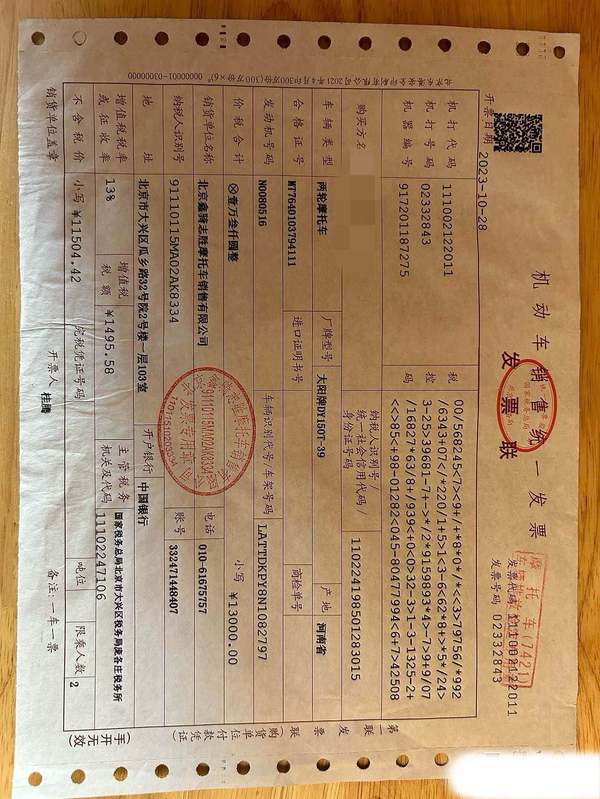 机动车销售统一发票
发票联
摩托车(7421)
发票代码 111002122011
发票号码 02332843
开票日期 2023-10-28
机打代码 111002122011
机打号码 02332843
机器编号 917201187275
税控码
00/568245<7><9+/+*8*0*/*<<3>79756/*992
/6343+07</*220/1+5>1<3-6<62*8+>*5*/24>
3-25>39681-7+->*/2*9159893*4>-7>9+9/07
/16827*63/8+/939<+0<0>32-3>1-3-1325-2+
<<>85+98-01282<045-80477994<6+7>42508
购买方名
纳税人识别号/
统一社会信用代码/
身份证号码
110224198501283015
车辆类型 两轮摩托车 厂牌型号 大阳牌DY150T-39 产地 河南省
合格证号 MT7640103794111 进口证明书号 商检单号
发动机号码 N0080516 车辆识别代号/车架号码 LATTDKPY8N1082797
价税合计 ⊗壹万叁仟圆整 小写 ¥13000.00
销货单位名称 北京鑫骑志胜摩托车销售有限公司 电话 010-61675757
纳税人识别号 91110115MA02AK8334 账号 332471448407
地址 北京市大兴区瓜乡路32号院2号楼一层103室 开户银行 中国银行
增值税税率或征收率 13% 增值税税额 ¥1495.58 主管税务机关及代码 国家税务总局北京市大兴区税务局庞各庄税务所
11102247106
不含税价 小写 ¥11504.42 完税凭证号码 吨位 限乘人数 2
销货单位盖章 开票人 桂腾 备注:一车一票
第一联 发票联 (购货单位付款凭证)
(手开无效)
91110115MA02AK8334
发票专用章